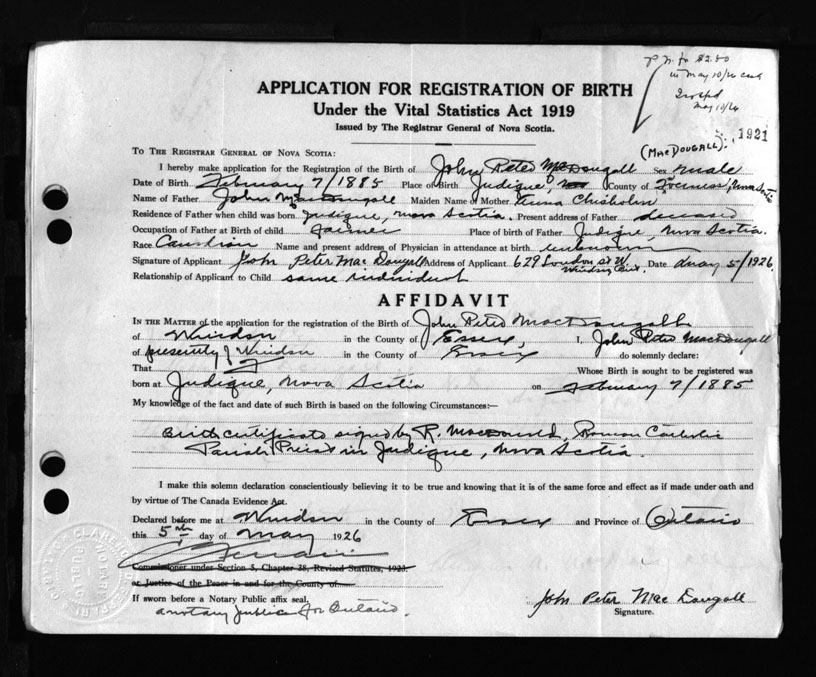 P.N. fo $2.50
in May 10/26 cash
May 10/26
1921
APPLICATION FOR REGISTRATION OF BIRTH
Under the Vital Statistics Act 1919
Issued by The Registrar General of Nova Scotia.
(MACDOUGALL)
TO THE REGISTRAR GENERAL OF NOVA SCOTIA:
I hereby make application for the Registration of the Birth of John Peter MacDougall Sex male
Date of Birth February 7/1885 Place of Birth Judique, County of Inverness, Nova Scotia
Name of Father John MacDougall Maiden Name of Mother Chisholm
Residence of Father when child was born Judique, Nova Scotia. Present address of Father deceased
Occupation of Father at Birth of child farmer Place of birth of Father Judique, Nova Scotia.
Race Canadian Name and present address of Physician in attendance at birth unknown
Signature of Applicant John Peter Mac Dougall Address of Applicant 629 London St W. Windsor Ont. Date May 5/1926
Relationship of Applicant to Child same individual
AFFIDAVIT
IN THE MATTER of the application for the registration of the Birth of John Peter MacDougall
of Windsor in the County of Essex, I, John Peter MacDougall
of presently of Windsor in the County of Essex do solemnly declare:
That I Whose Birth is sought to be registered was
born at Judique, Nova Scotia on February 7/1885
My knowledge of the fact and date of such Birth is based on the following Circumstances:—
Birth certificate signed by R. MacDonald, Roman Catholic
Parish Priest in Judique, Nova Scotia.
I make this solemn declaration conscientiously believing it to be true and knowing that it is of the same force and effect as if made under oath and
by virtue of The Canada Evidence Act.
Declared before me at Windsor in the County of Essex and Province of Ontario
this 5th day of May 1926
Commissioner under Section 5, Chapter 38, Revised Statutes, 1923.
or Justice of the Peace in and for the County of
If sworn before a Notary Public affix seal,
a notary public for Ontario.
John Peter Mac Dougall
Signature.
NOTARY PUBLIC